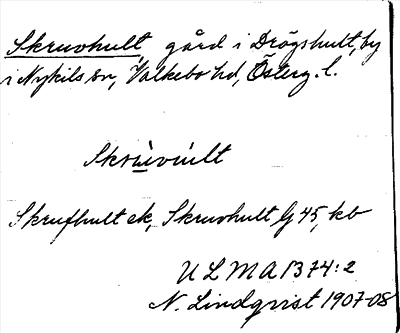 Skruvhult gård i Drögshult, by
i Nykils sn, Valkebo hd, Österg. l.
Skrùvúlt
Skrufhult ek, Skruvhult G 45, kb
ULMA 1374:2
N. Lindqvist 1907-08